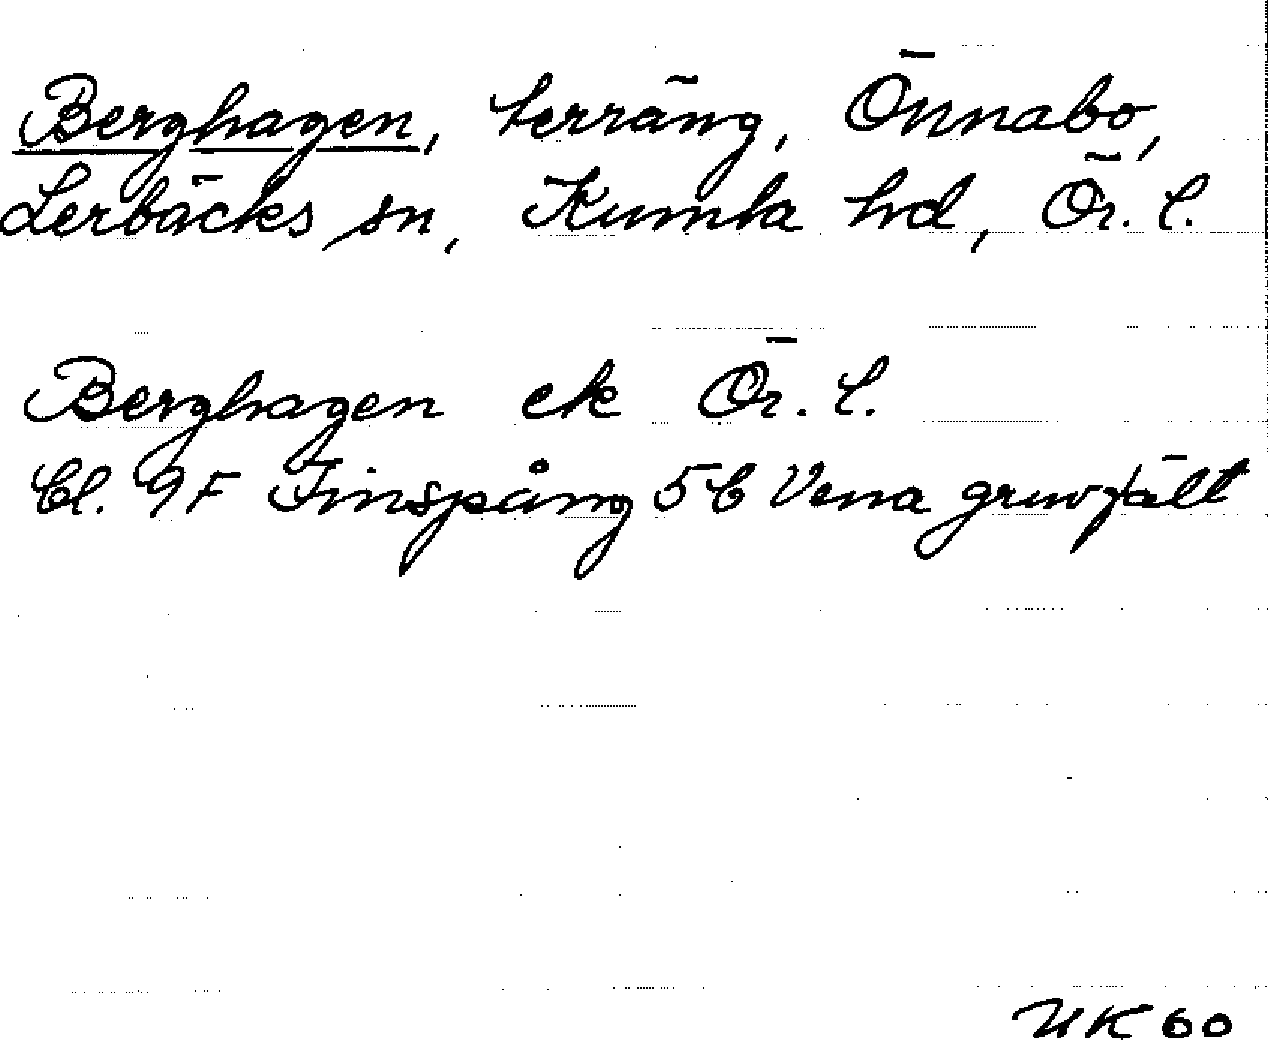 Berghagen, terräng, Önnabo,
Lerbäcks sn, Kumla hd, Ör. l.
Berghagen ek Ör. l.
Bl. 9F Finspång 5b Vena gruvfält
UK 60